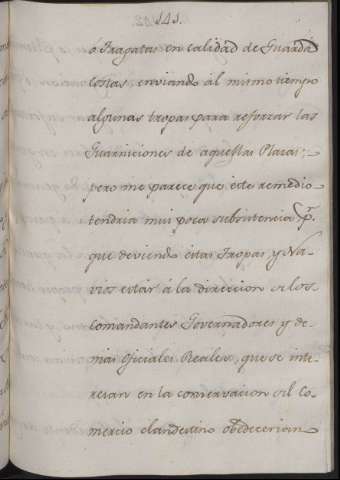 141.
ó Fragatas en calidad de Guarda
costas, enviando al mismo tiempo
algunas tropas para reforzar las
Guarniciones de aquellas Plazas;
pero me parece que este remedio
tendria mui poca subsistencia, p.
que deviendo estas Tropas, y Na-
vios estar á la direccion de los
comandantes Governadores y de-
mas oficiales Reales, que se inte-
resan en la conversacion del Co-
mercio clandestino obedecerian